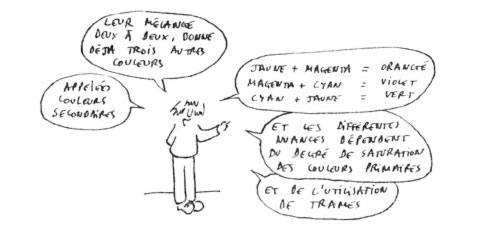 LEUR MÉLANGE
DEUX À DEUX, DONNE
DÉJÀ TROIS AUTRES
COULEURS
APPELÉES
COULEURS
SECONDAIRES
JAUNE + MAGENTA = ORANGÉ
MAGENTA + CYAN = VIOLET
CYAN + JAUNE = VERT
ET LES DIFFÉRENTES
NUANCES DÉPENDENT
DU DEGRÉ DE SATURATION
DES COULEURS PRIMAIRES
ET DE L'UTILISATION
DE TRAMES